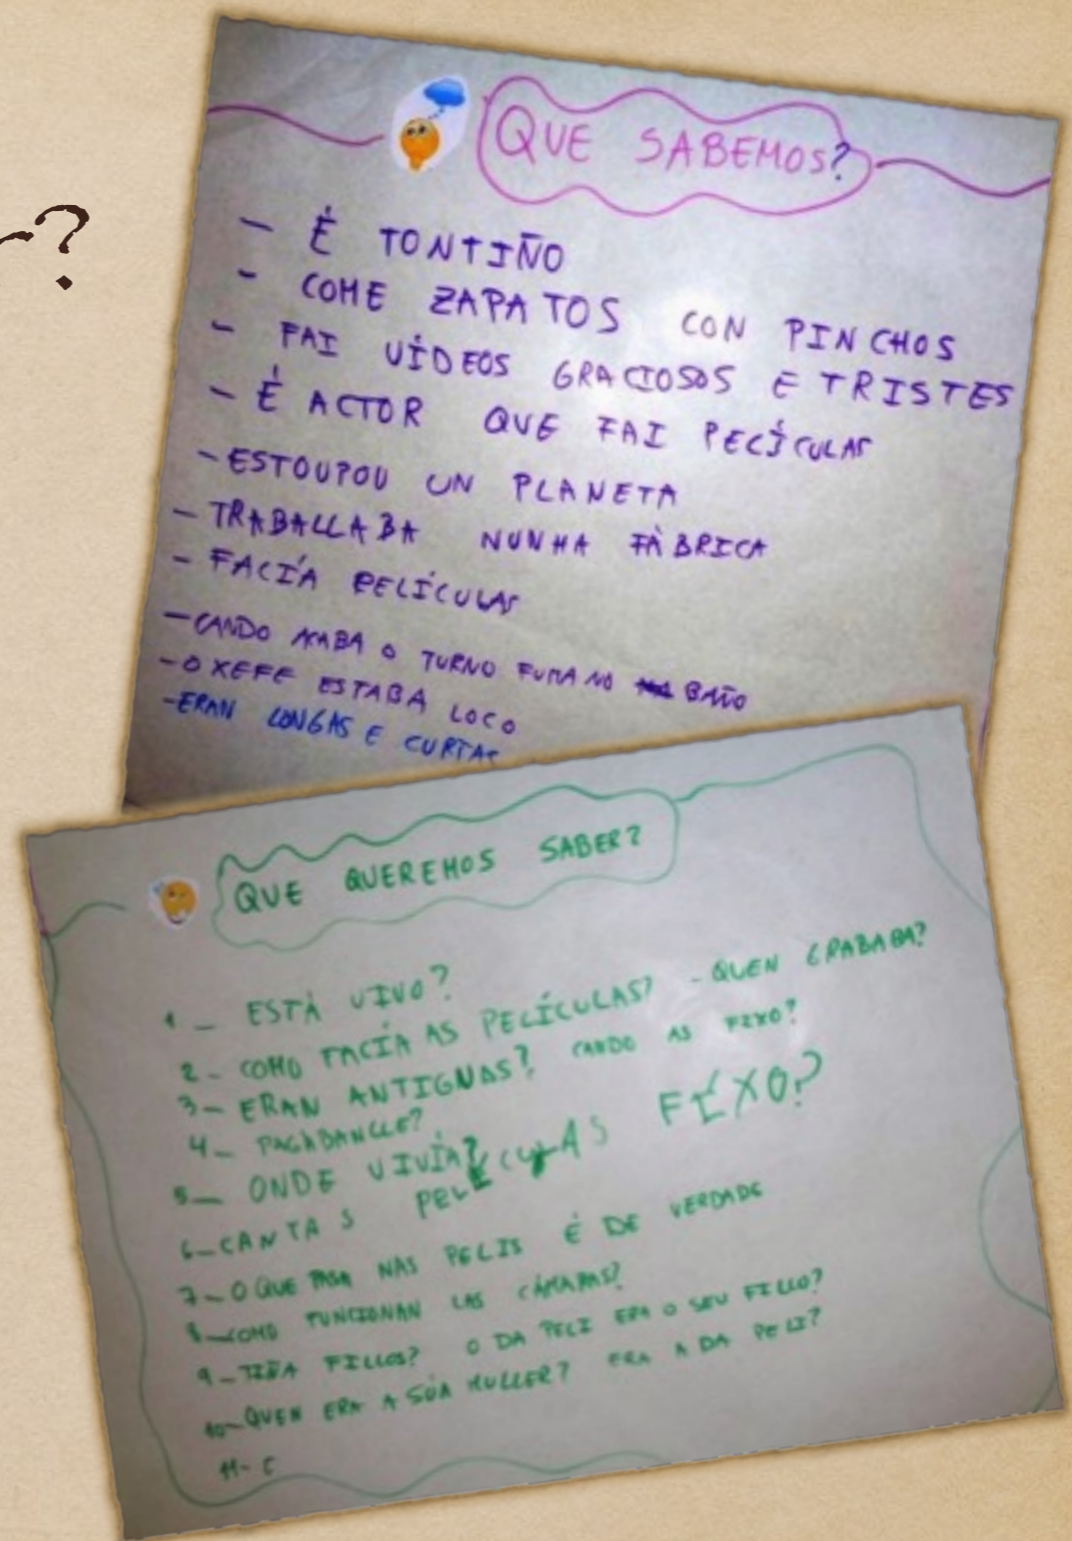 ?
QUE SABEMOS?
- É TONTIÑO
- COME ZAPATOS CON PINCHOS
- FAI VÍDEOS GRACIOSOS E TRISTES
- É ACTOR QUE FAI PECÍCULAS
- ESTOUPOU UN PLANETA
- TRABALLABA NUNHA FÁBRICA
- FACÍA PELÍCULAS
- CANDO ACABA O TURNO FUMA NO BAÑO
- O XEFE ESTABA LOCO
- ERAN LONGAS E CURTAS
QUE QUEREMOS SABER?
1 - ESTÁ VIVO?
2 - COMO FACÍA AS PELÍCULAS? - QUEN GRABABA?
3 - ERAN ANTIGUAS? CANDO AS FIXO?
4 - PAGÁBANLLE?
5 - ONDE VIVÍA?
6 - CANTAS PELÍCULAS FÍXO?
7 - O QUE PASA NAS PELIS É DE VERDADE
8 - COMO FUNCIONAN LAS CÁMARAS?
9 - TIÑA FILLOS? O DA PELI ERA O SEU FILLO?
10 - QUEN ERA A SÚA MULLER? ERA A DA PELI?
11 - C